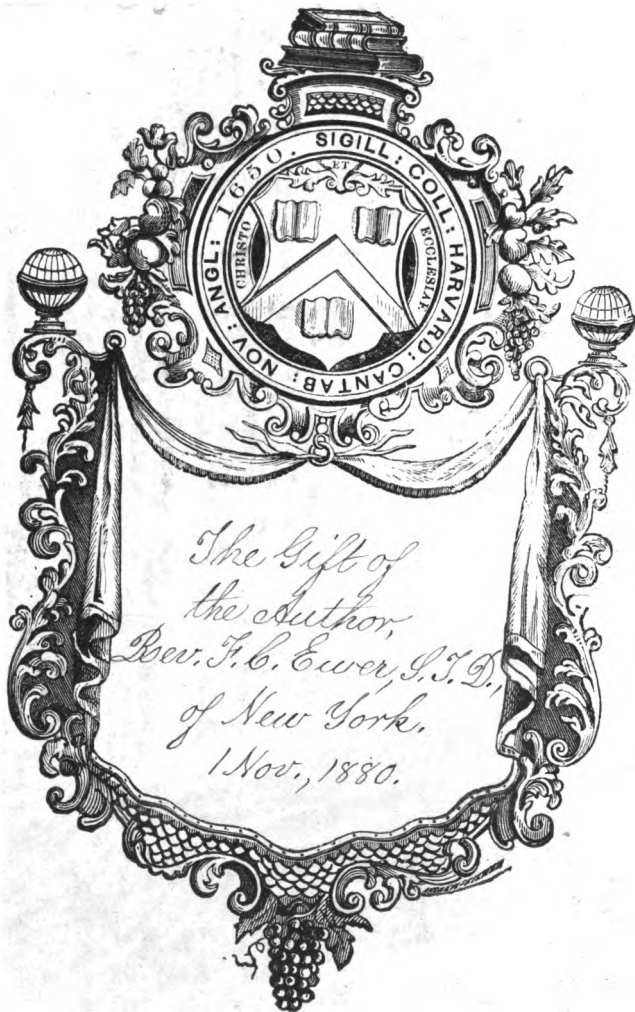 SIGILL: COLL: HARVARD: CANTAB: NOV: ANGL: 1650.
CHRISTO ET ECCLESIAE
The Gift of
the Author,
Rev. F. C. Ewer, S. T. D.,
of New York.
1 Nov., 1880.